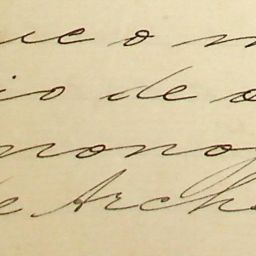 ue o n
io de o
nono
de Arch